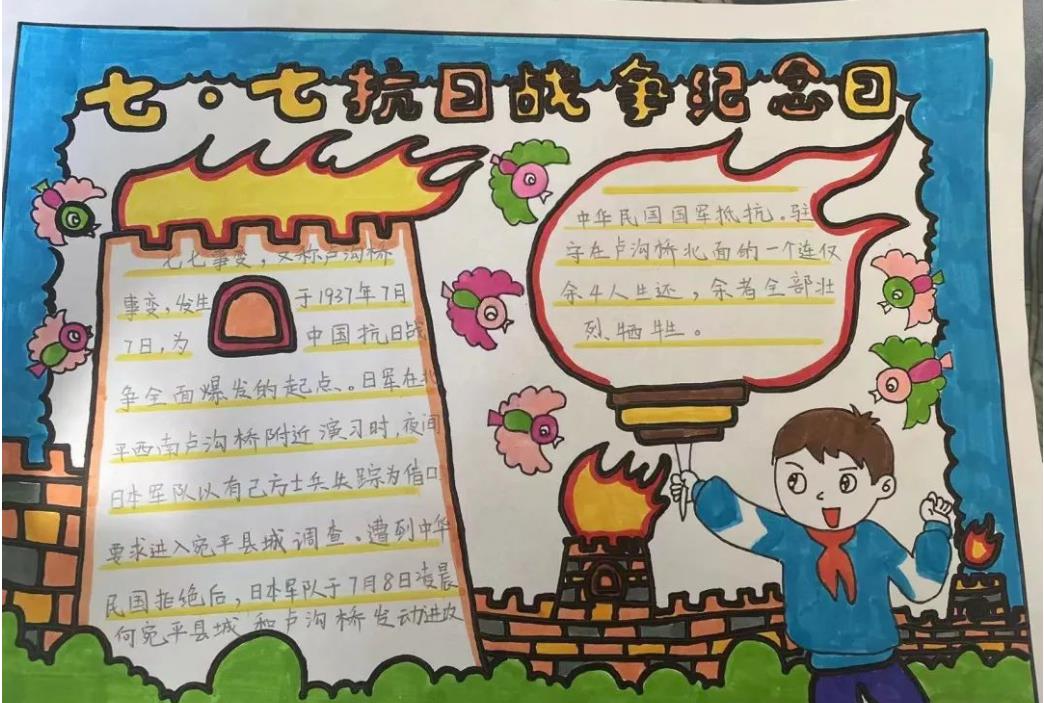 七·七抗日战争纪念日
七七事变，又称卢沟桥
事变，发生于1937年7月
7日，为中国抗日战
争全面爆发的起点、。日军在北
平西南卢沟桥附近演习时，夜间
日本军队以有己方士兵失踪为借口
要求进入宛平县城调查。遭到中华
民国拒绝后，日本军队于7月8日凌晨
向宛平县城和卢沟桥发动进攻
中华民国国军抵抗。驻
守在卢沟桥北面的一个连仅
余4人生还，余者全部壮
烈牺牲。